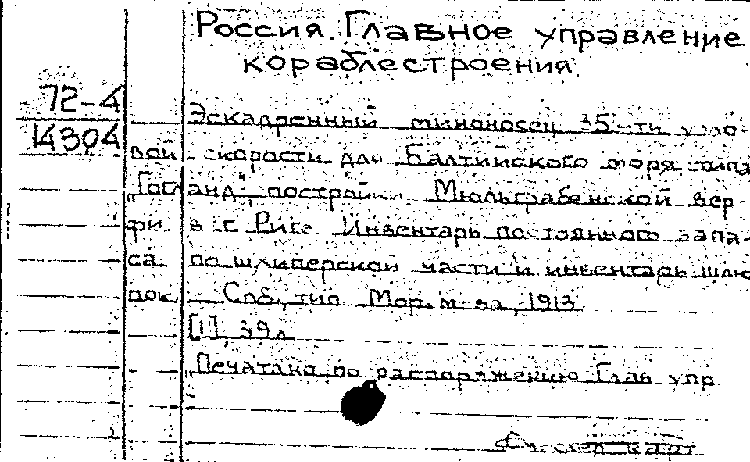 Россия. Главное управление
кораблестроения.
72-4
14304
Эскадренный миноносец 35-ти узло-
вой скорости для Балтийского моря типа
„Готланд“, постройки Мюльграбенской вер-
фи в г. Риге Инвентарь постоянного запа-
са по шкиперской части и инвентарь шлю-
пок. Спб, тип Мор. м-ва, 1913
[1], 39 л
Печатано по распоряжению Глав упр